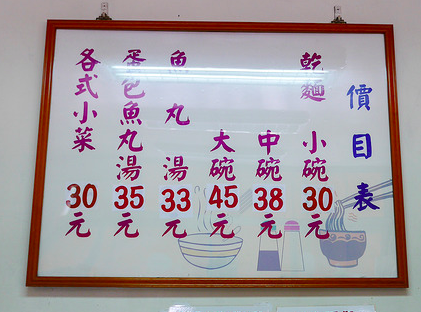 價目表
乾麵 小碗 30元
中碗 38元
大碗 45元
魚丸湯 33元
蛋包魚丸湯 35元
各式小菜 30元